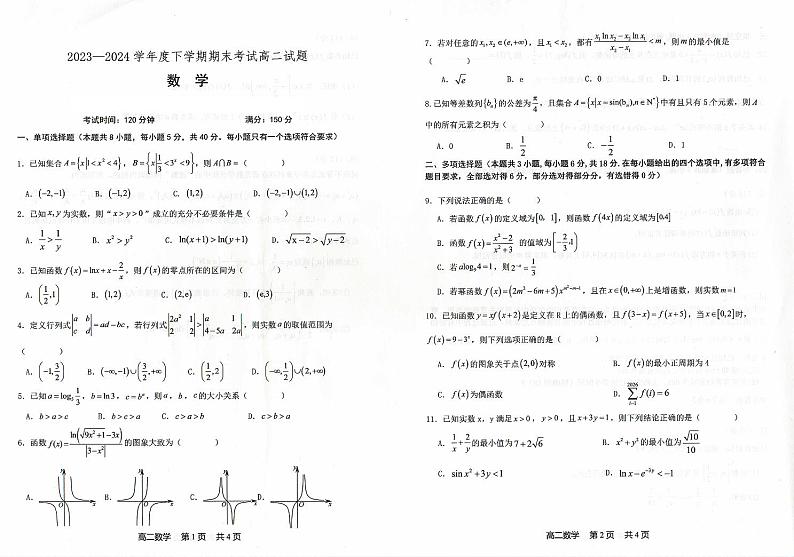 2023—2024学年度下学期期末考试高二试题
数 学
考试时间：120分钟 满分：150分
一、单项选择题（本题共8小题，每小题5分，共40分。每小题只有一个选项符合要求）
1. 已知集合A={x|1<x²<4}，B={x|1/3<3ˣ<9}，则A∩B=（ ）
A. (-2,-1) B. (-1,2) C. (1,2) D. (-2,-1)∪(1,2)
2. 已知x,y为实数，则“x>y>0”成立的充分不必要条件是（ ）
A. 1/x>1/y B. x²>y² C. ln(x+1)>ln(y+1) D. √(x-2)>√(y-2)
3. 已知函数f(x)=lnx+x-2/x，则f(x)的零点所在的区间为（ ）
A. (1/2,1) B. (1,2) C. (2,e) D. (e,3)
4. 定义行列式|a b; c d|=ad-bc，若行列式|2a² 1; 2 2|>|a 1; 4-5a 2a|，则实数a的取值范围为
（ ）
A. (-1,3/2) B. (-∞,-1)∪(3/2,+∞) C. (1/2,2) D. (-∞,1/2)∪(2,+∞)
5. 已知a=log₃1/3，b=ln3，c=bᵃ，则a，b，c的大小关系（ ）
A. b>a>c B. b>c>a C. c>a>b D. c>b>a
6. 函数f(x)=ln(√(9x²+1)-3x)/|3-x²|的图象大致为（ ）
A. B. C. D.
高二数学 第1页 共4页
7. 若对任意的x₁,x₂∈(e,+∞)，且x₁<x₂，都有(x₁lnx₂-x₂lnx₁)/(x₂-x₁)<m，则m的最小值是
（ ）
A. √e B. e C. 0 D. 1
8. 已知等差数列{bₙ}的公差为π/4，且集合A={x|x=sin(bₙ),n∈N*}中有且只有5个元素，则A
中的所有元素之积为（ ）
A. 0 B. 1/2 C. -1/2 D. 1
二、多项选择题（本题共3小题，每小题6分，共18分. 在每小题给出的四个选项中，有多项符合
题目要求，全部选对得6分，部分选对得部分分，有选错得0分）
9. 下列说法正确的是（ ）
A. 若函数f(x)的定义域为[0，1]，则函数f(4x)的定义域为[0,4]
B. 函数f(x)=(x²-2)/(x²+3)的值域为[-2/3,1)
C. 若alog₃4=1，则2⁻ᵃ=1/3
D. 若幂函数f(x)=(2m²-6m+5)x^(m²-m-1)，且在x∈(0,+∞)上是增函数，则实数m=1
10. 已知函数y=xf(x+2)是定义在R上的偶函数，且f(3-x)=f(x+5)，当x∈[0,2]时，
f(x)=9-3ˣ，则下列选项正确的是（ ）
A. f(x)的图象关于点(2,0)对称 B. f(x)的最小正周期为4
C. f(x)为偶函数 D. ∑(i=1→2026)f(i)=6
11. 已知实数x，y满足x>0，y>0，且x+3y=1，则下列结论正确的是（ ）
A. 1/x+2/y的最小值为7+2√6 B. x²+y²的最小值为√10/10
C. sinx²+3y<1 D. lnx-e⁻³ʸ<-1
高二数学 第2页 共4页